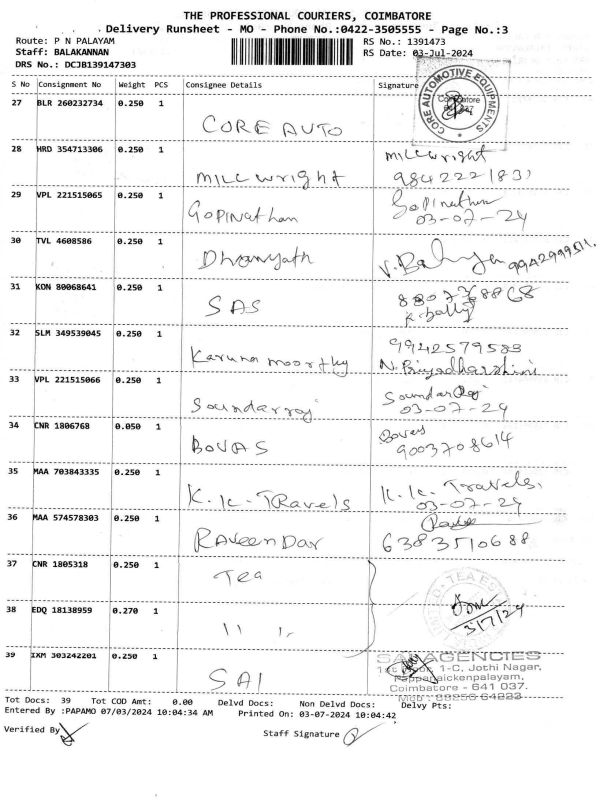 THE PROFESSIONAL COURIERS, COIMBATORE
Delivery Runsheet - MO - Phone No.:0422-3505555 - Page No.:3
Route: P N PALAYAM
RS No.: 1391473
Staff: BALAKANNAN
RS Date: 03-Jul-2024
DRS No.: DCJB139147303
S No Consignment No Weight PCS Consignee Details Signature
CORE AUTOMOTIVE EQUIPMENTS
Coimbatore
27 BLR 260232734 0.250 1
CORE AUTO
28 HRD 354713306 0.250 1
Millwright
Millwright
29 VPL 221515065 0.250 1
Gopinathan
Gopinathan
03-07-24
30 TVL 4608586 0.250 1
31 KON 80068641 0.250 1
SAS
32 SLM 349539045 0.250 1
Karuna moorthy
9942579583
N. Priyadharshini
33 VPL 221515066 0.250 1
Soundarraj
Soundar Raj
03-07-24
34 CNR 1806768 0.050 1
BOVAS
Bovas
9003708614
35 MAA 703843335 0.250 1
K.K. TRavels
K.K. Travels.
03-07-24
36 MAA 574578303 0.250 1
RAveenDar
6383510688
37 CNR 1805318 0.250 1
Tea
38 EDQ 18138959 0.270 1
11 11
3/7/24
39 IXM 303242201 0.250 1
SAI
SAI AGENCIES
1-C, Jothi Nagar,
Pappanaickenpalayam,
Coimbatore - 641 037.
Tot Docs: 39 Tot COD Amt: 0.00 Delvd Docs: Non Delvd Docs: Delvy Pts:
Entered By :PAPAMO 07/03/2024 10:04:34 AM Printed On: 03-07-2024 10:04:42
Verified By
Staff Signature